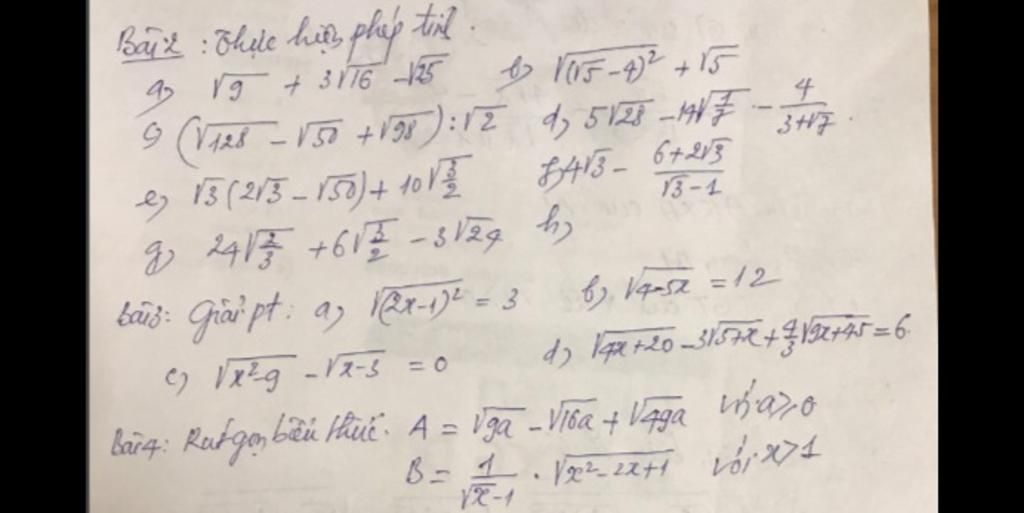 Bài 2 : Thực hiện phép tính.
a, √9 + 3√16 - √25 b, √(√5 - 4)² + √5
c, (√128 - √50 + √98) : √2 d, 5√28 - 14√1/7 - 4/(3+√7).
e, √3(2√3 - √50) + 10√3/2 f, 4√3 - (6+2√3)/(√3-1)
g, 24√2/3 + 6√3/2 - 3√24 h,
Bài 3: Giải pt: a, √(2x-1)² = 3 b, √4-5x = 12
c, √x²-9 - √x-3 = 0 d, √4x+20 - 3√5+x + 4/3√9x+45 = 6
Bài 4: Rút gọn biểu thức. A = √9a - √16a + √49a với a ≥ 0
B = 1/(√x-1) . √x²-2x+1 với x > 1